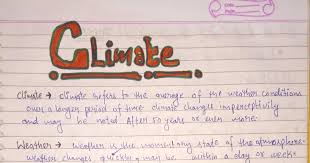 Climate
Climate → Climate refers to the average of the weather conditions
over a longer period of time. climate changes imperceptively
and may be noted After 50 years or even more.
Weather → Weather is the momentary state of the atmosphere
weather changes quickly, may be within a day or week.